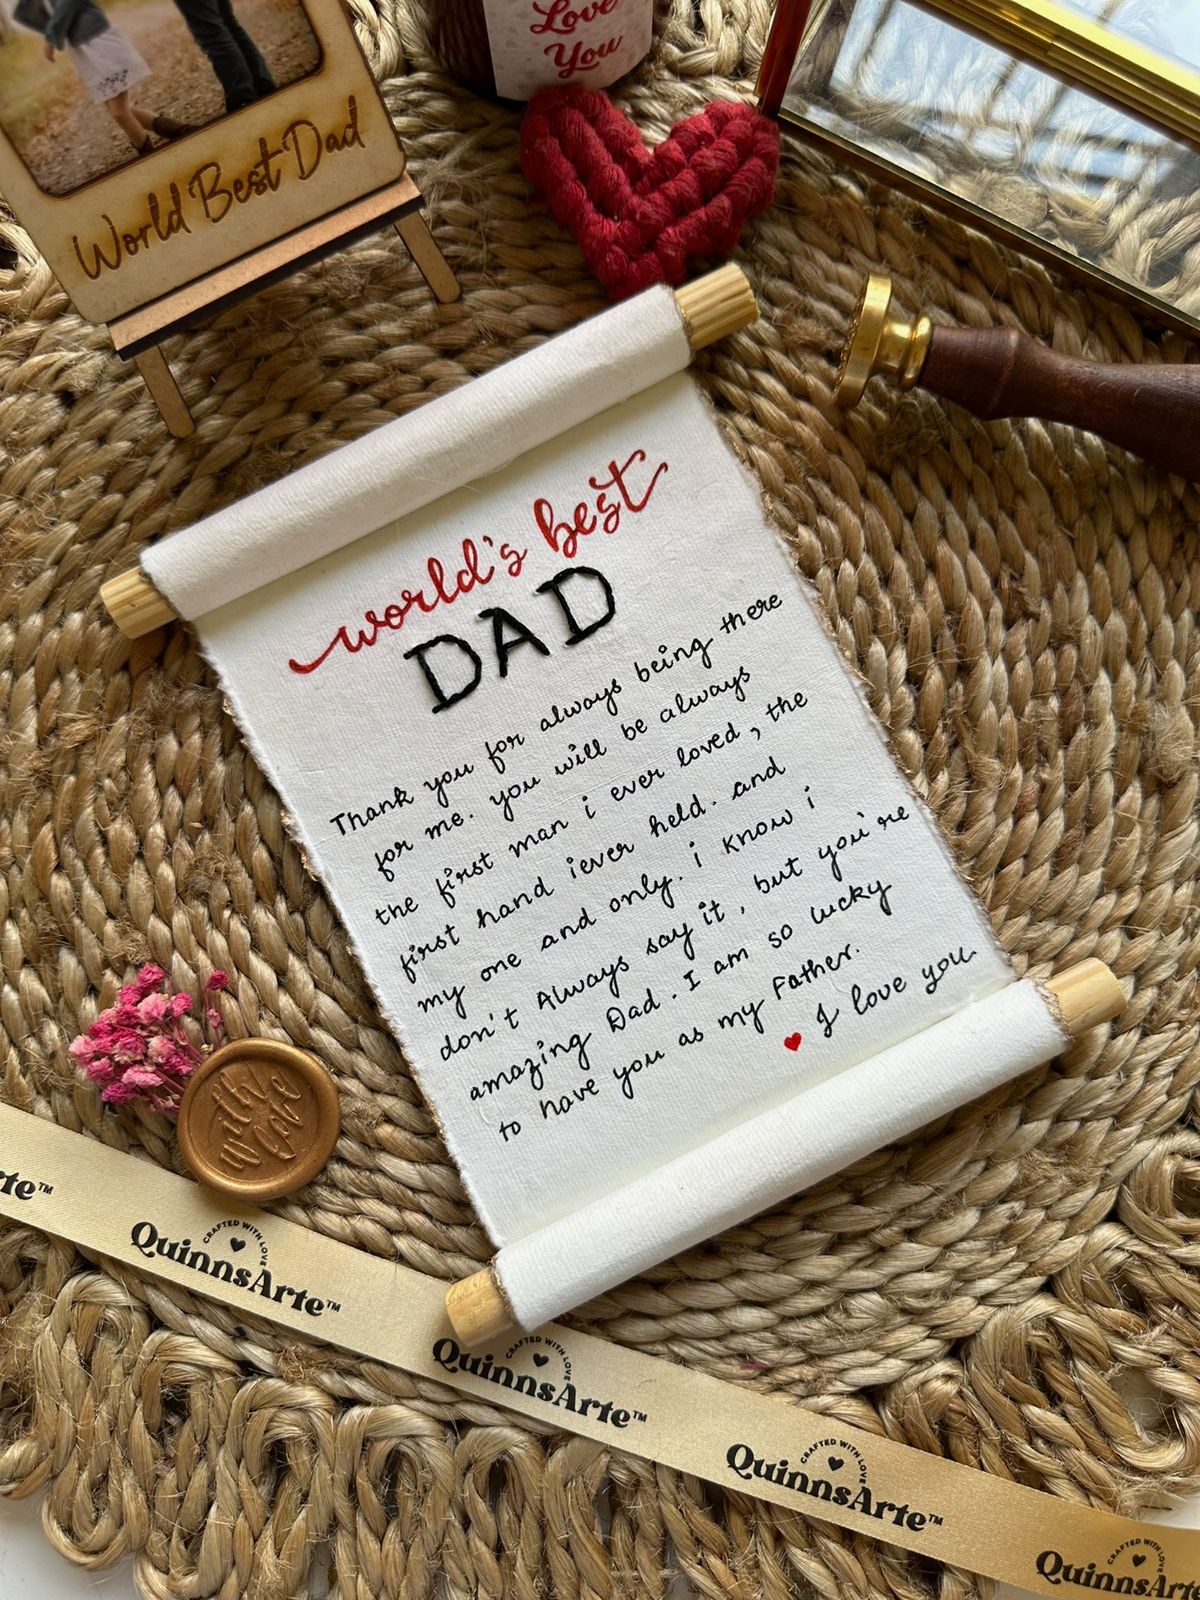 Love
You
World Best Dad
world's best
DAD
Thank you for always being there
for me. you will be always
the first man i ever loved, the
first hand iever held. and
my one and only. i know i
don't Always say it, but you're
amazing Dad. I am so lucky
to have you as my Father.
I love you.
with
love
Arte™
CRAFTED WITH LOVE
QuinnsArte™
CRAFTED WITH LOVE
QuinnsArte™
CRAFTED WITH LOVE
QuinnsArte™
CRAFTED WITH LOVE
QuinnsArte